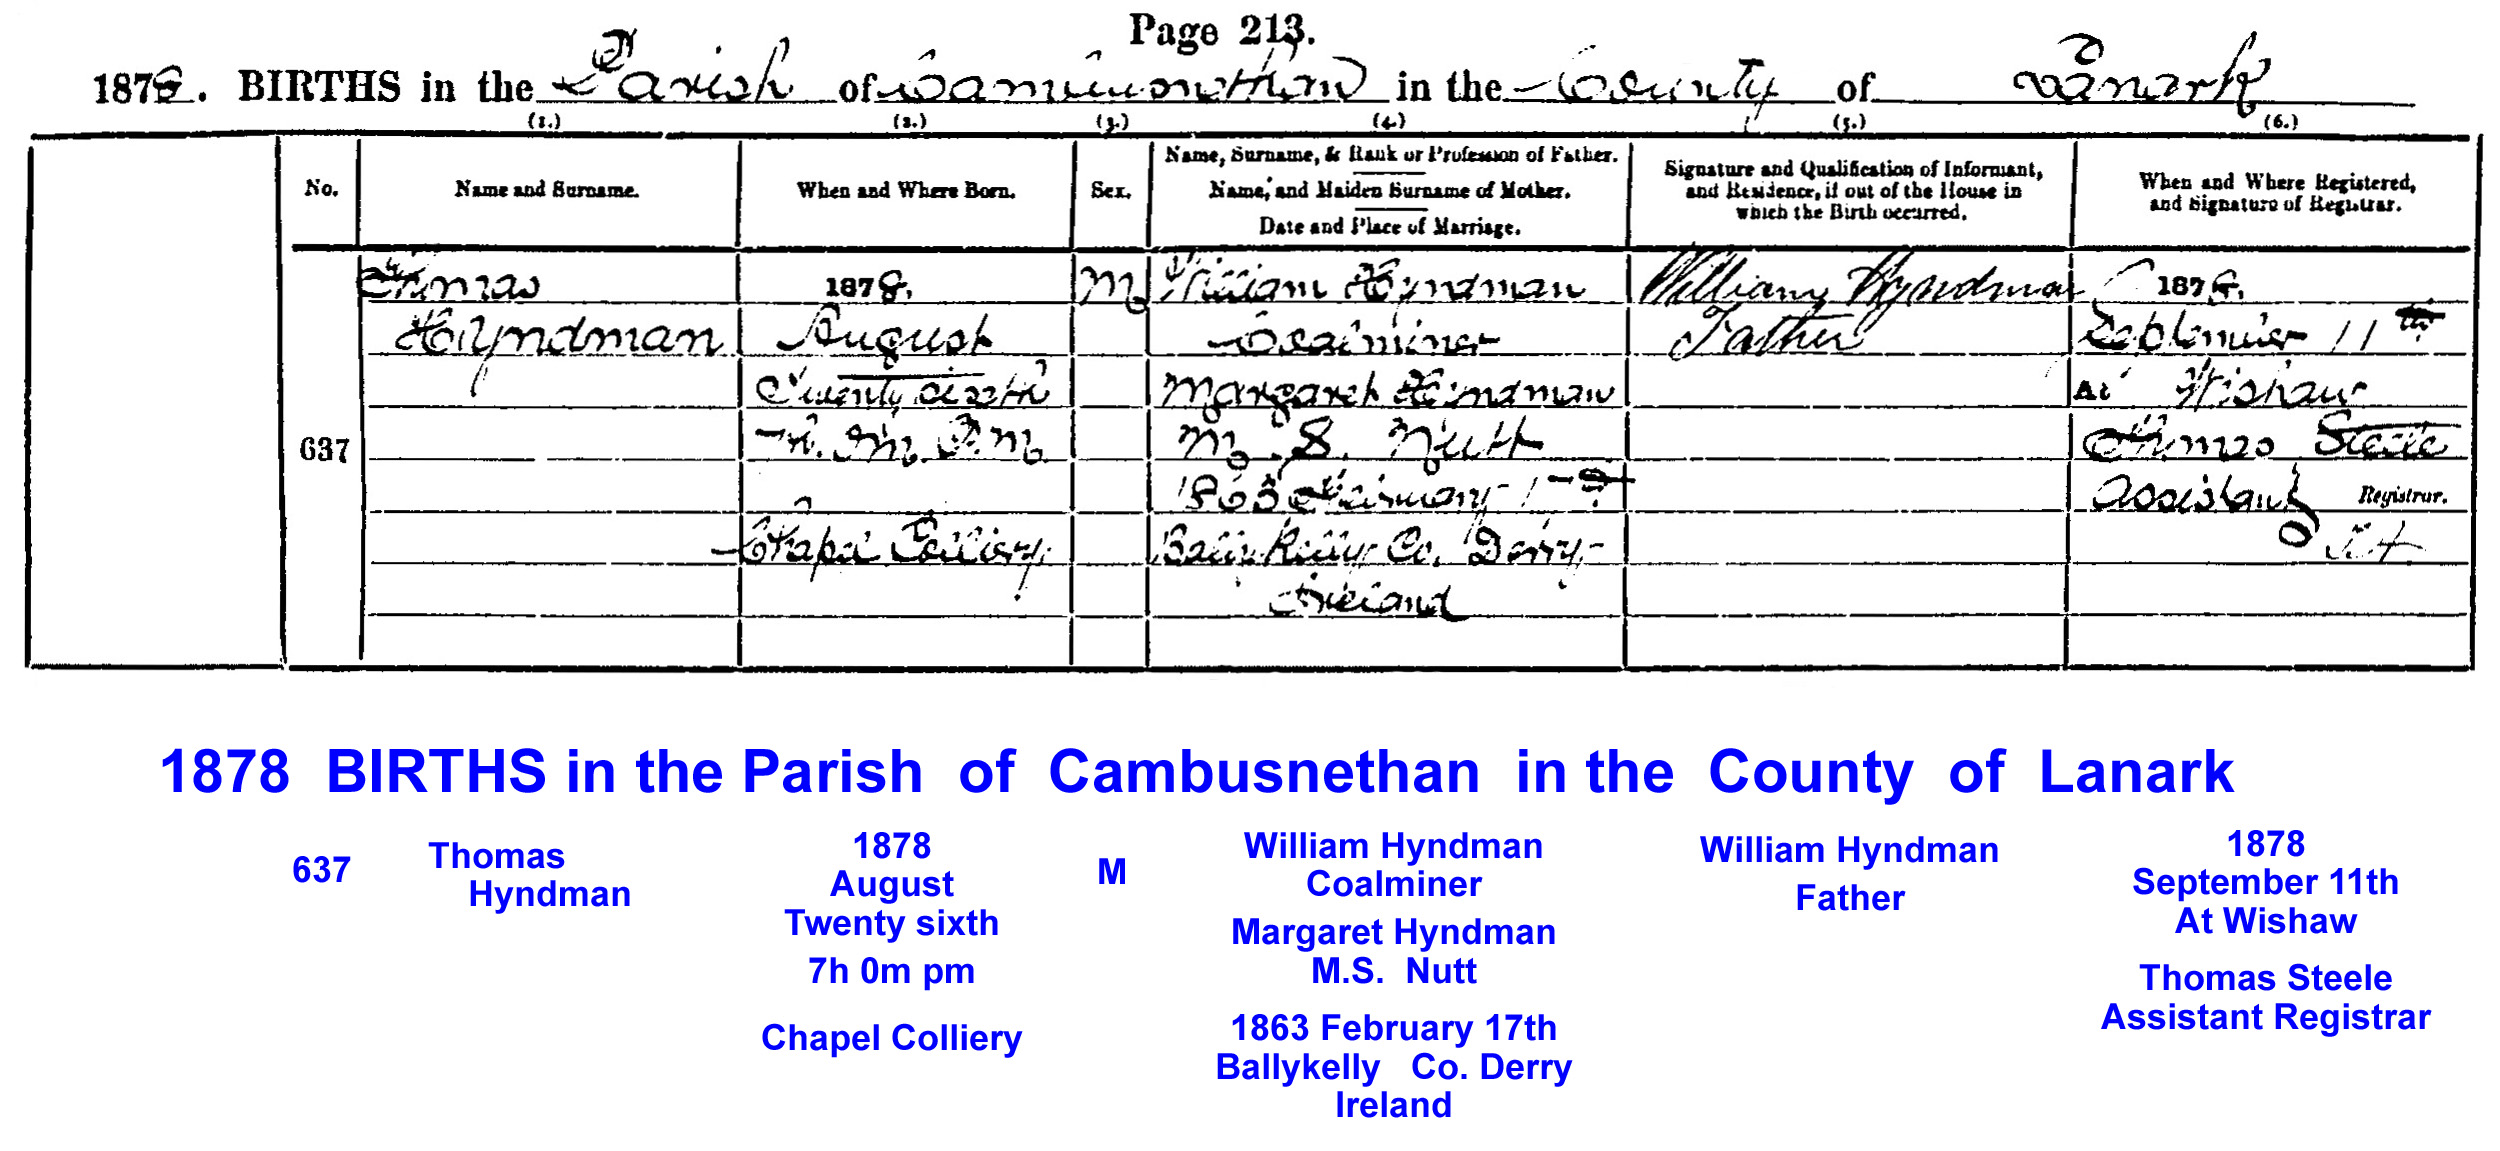 Page 213.
1878. BIRTHS in the Parish of Cambusnethan in the County of Lanark
(1.) (2.) (3.) (4.) (5.) (6.)
No.
Name and Surname.
When and Where Born.
Sex.
Name, Surname, & Rank or Profession of Father.
Name, and Maiden Surname of Mother.
Date and Place of Marriage.
Signature and Qualification of Informant,
and Residence, if out of the House in
which the Birth occurred.
When and Where Registered,
and Signature of Registrar.
637
Thomas
Hyndman
1878.
August
Twenty sixth
7h. 0m. P.M.
Chapel Colliery
M
William Hyndman
Coalminer
Margaret Hyndman
M.S. Nutt
1863 February 17th
Ballykelly Co. Derry
Ireland
William Hyndman
Father
1878.
September 11th
At Wishaw
Thomas Steele
Assistant Registrar.
1878 BIRTHS in the Parish of Cambusnethan in the County of Lanark
637
Thomas
Hyndman
1878
August
Twenty sixth
7h 0m pm
Chapel Colliery
M
William Hyndman
Coalminer
Margaret Hyndman
M.S. Nutt
1863 February 17th
Ballykelly Co. Derry
Ireland
William Hyndman
Father
1878
September 11th
At Wishaw
Thomas Steele
Assistant Registrar